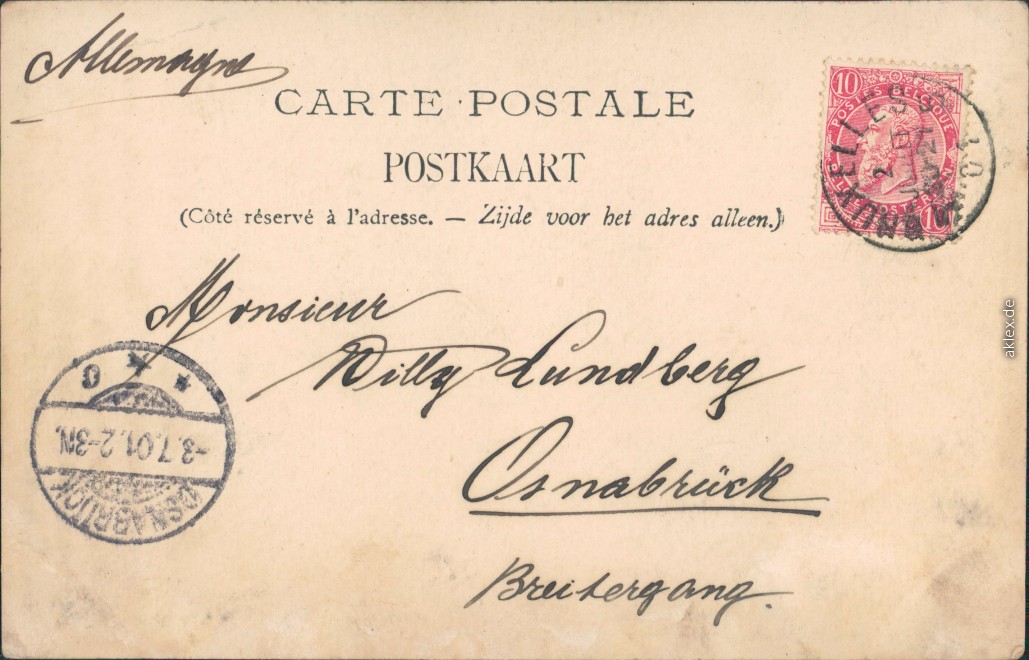 Allemagne
CARTE POSTALE
POSTKAART
(Côté réservé à l'adresse. — Zijde voor het adres alleen.)
10
POSTES BELGIQUE
10
BRUXELLES
2 JUIL
Monsieur
Willy Lundberg
Osnabrück
Breitergang.
OSNABRÜCK
-3.7.01.2-3N.
aklex.de